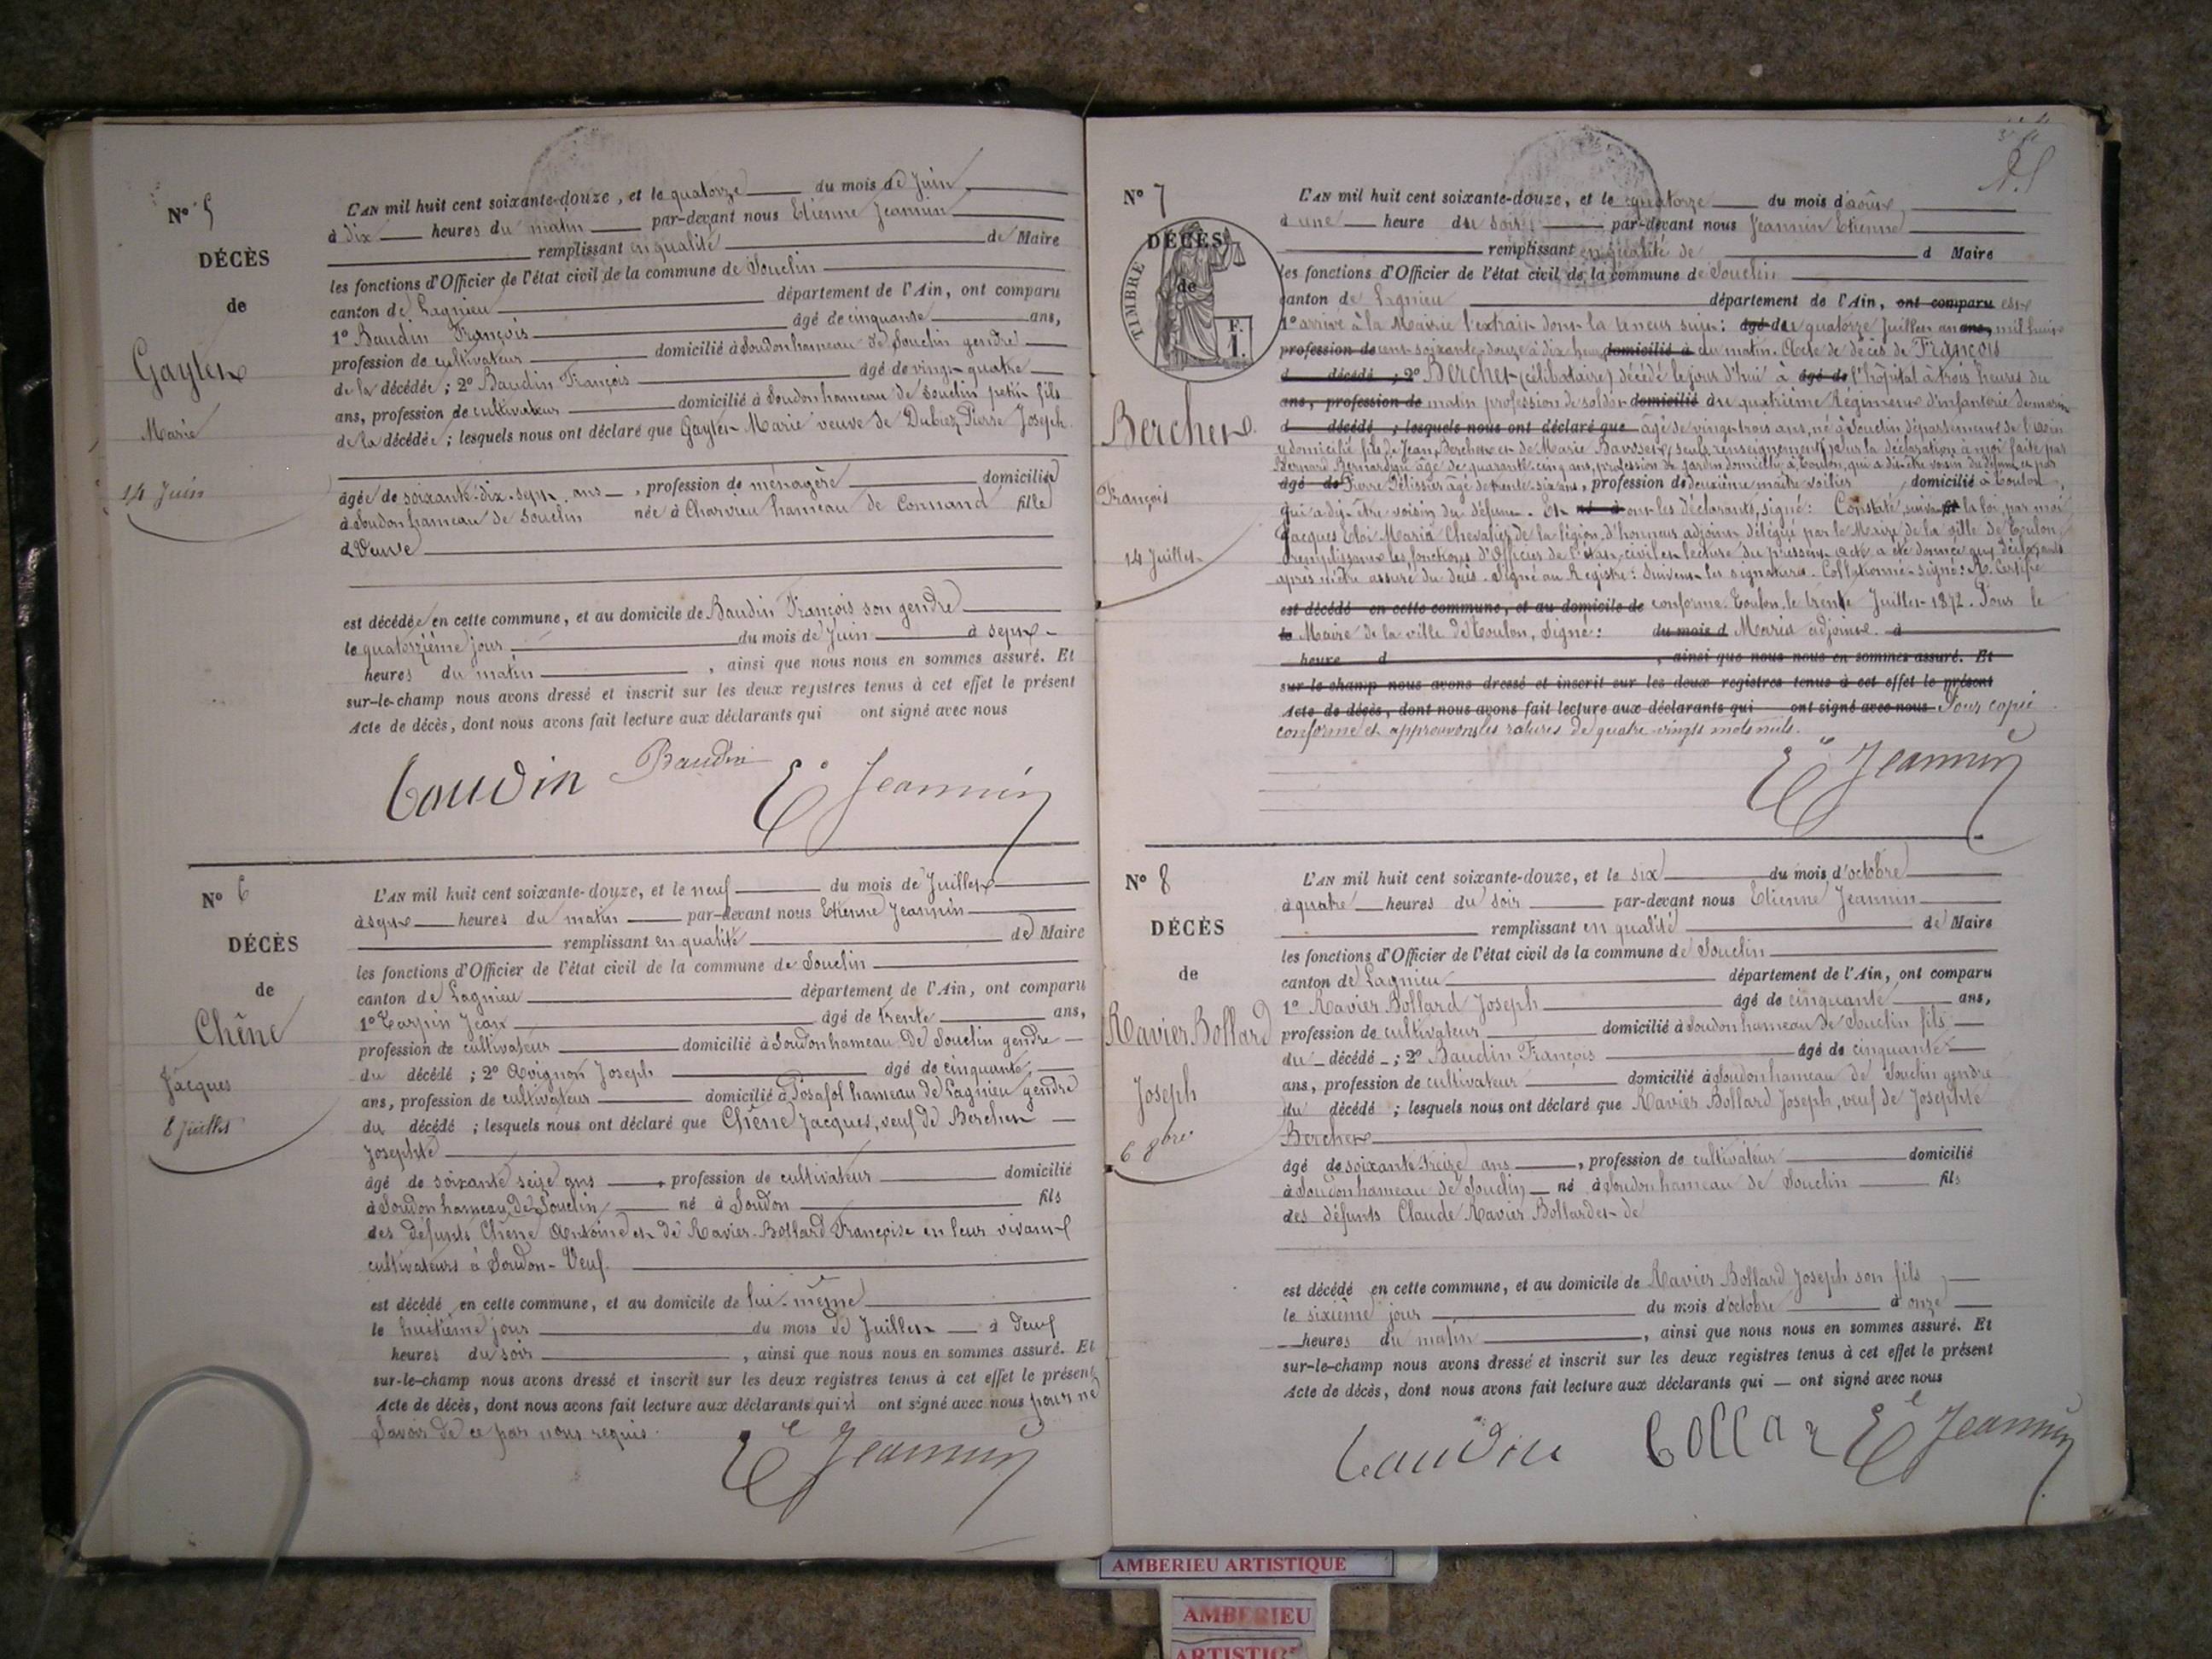 N° 5
DÉCÈS
de
Gaylet
Marie
14 Juin
L'AN mil huit cent soixante-douze, et le quatorze du mois de Juin
à dix heures du matin par-devant nous Etienne Jeannin
remplissant en qualité de Maire
les fonctions d'Officier de l'état civil de la commune de Souclin
canton de Lagnieu département de l'Ain, ont comparu
1° Baudin François âgé de cinquante ans,
profession de cultivateur domicilié à Soudon hameau de Souclin gendre
de la décédée ; 2° Baudin François âgé de vingt-quatre
ans, profession de cultivateur domicilié à Soudon hameau de Souclin petit fils
de la décédée ; lesquels nous ont déclaré que Gaylet Marie veuve de Dubiez Pierre Joseph
âgée de soixante-dix-sept ans, profession de ménagère domiciliée
à Soudon hameau de Souclin née à Charvieu hameau de Connand fille
d Veuve
est décédée en cette commune, et au domicile de Baudin François son gendre
le quatorzième jour du mois de Juin à sept
heures du matin, ainsi que nous nous en sommes assuré. Et
sur-le-champ nous avons dressé et inscrit sur les deux registres tenus à cet effet le présent
Acte de décès, dont nous avons fait lecture aux déclarants qui ont signé avec nous
Baudin Baudin Ee Jeannin
N° 6
DÉCÈS
de
Chêne
Jacques
8 Juillet
L'AN mil huit cent soixante-douze, et le neuf du mois de Juillet
à sept heures du matin par-devant nous Etienne Jeannin
remplissant en qualité de Maire
les fonctions d'Officier de l'état civil de la commune de Souclin
canton de Lagnieu département de l'Ain, ont comparu
1° Tarpin Jean âgé de trente ans,
profession de cultivateur domicilié à Soudon hameau de Souclin gendre
du décédé ; 2° Avignon Joseph âgé de cinquante
ans, profession de cultivateur domicilié à Posafol hameau de Lagnieu gendre
du décédé ; lesquels nous ont déclaré que Chêne Jacques, veuf de Berchet
Josephte
âgé de soixante seize ans, profession de cultivateur domicilié
à Soudon hameau de Souclin né à Soudon fils
des défunts Chêne Antoine et de Ravier-Bollard Françoise en leur vivant
cultivateurs à Soudon - Veuf.
est décédé en cette commune, et au domicile de lui-même
le huitième jour du mois de Juillet à deux
heures du soir, ainsi que nous nous en sommes assuré. Et
sur-le-champ nous avons dressé et inscrit sur les deux registres tenus à cet effet le présent
Acte de décès, dont nous avons fait lecture aux déclarants qui ont signé avec nous pour ne
savoir de ce par nous requis.
Ee Jeannin
N° 7
DÉCÈS
de
TIMBRE
F.
1.
Berchet
François
14 Juillet
L'AN mil huit cent soixante-douze, et le quatorze du mois d'août
à une heure du soir par-devant nous Jeannin Etienne
remplissant en qualité de d Maire
les fonctions d'Officier de l'état civil de la commune de Souclin
canton de Lagnieu département de l'Ain, ont comparu est
1° arrivé à la Mairie l'extrait dont la teneur suit : âgé de quatorze Juillet an ans, mil huit
profession de cent soixante-douze à dix heures domicilié à du matin. Acte de décès de François
d décédé ; 2° Berchet (célibataire) décédé le jour d'hui à âgé de l'hôpital à trois heures du
ans, profession de matin profession de soldat domicilié au quatrième Régiment d'infanterie de marine
d décédé ; lesquels nous ont déclaré que âgé de vingt trois ans, né à Souclin département de l'Ain
y domicilié fils de Jean Berchet et de Marie (seuls renseignements) sur la déclaration à moi faite par
Bernard âgé de quarante cinq ans, profession de jardin domicilié à Toulon, qui a dit être voisin du défunt et par
âgé de Pierre Pélissier âgé de trente-six ans, profession de deuxième maître voilier, domicilié à Toulon,
qui a dit être voisin du défunt. Et né à ont les déclarants, signé : Constaté, suivant la loi, par moi
Jacques Eloi Maria Chevalier de la légion d'honneur adjoint délégué par le Maire de la ville de Toulon,
remplissant les fonctions d'Officier de l'état civil et lecture du présent acte a été donnée aux déclarants
après m'être assuré du décès. Signé au Registre : Suivent les signatures. Collationné - signé : A. Certifié
est décédé en cette commune, et au domicile de conforme. Toulon le trente Juillet 1872. Pour le
le Maire de la ville de Toulon, Signé : du mois d Maria adjoint. à
heure d, ainsi que nous nous en sommes assuré. Et
sur-le-champ nous avons dressé et inscrit sur les deux registres tenus à cet effet le présent
Acte de décès, dont nous avons fait lecture aux déclarants qui ont signé avec nous Pour copie
conforme et approuvons les ratures de quatre-vingts mots nuls.
Ee Jeannin
N° 8
DÉCÈS
de
Ravier Bollard
Joseph
6 8bre
L'AN mil huit cent soixante-douze, et le six du mois d'octobre
à quatre heures du soir par-devant nous Etienne Jeannin
remplissant en qualité de Maire
les fonctions d'Officier de l'état civil de la commune de Souclin
canton de Lagnieu département de l'Ain, ont comparu
1° Ravier Bollard Joseph âgé de cinquante ans,
profession de cultivateur domicilié à Soudon hameau de Souclin fils
du décédé ; 2° Baudin François âgé de cinquante
ans, profession de cultivateur domicilié à Soudon hameau de Souclin gendre
du décédé ; lesquels nous ont déclaré que Ravier Bollard Joseph, veuf de Josephte
Berchet
âgé de soixante treize ans, profession de cultivateur domicilié
à Soudon hameau de Souclin né à Soudon hameau de Souclin fils
des défunts Claude Ravier Bollard et de
est décédé en cette commune, et au domicile de Ravier Bollard Joseph son fils
le sixième jour du mois d'octobre à onze
heures du matin, ainsi que nous nous en sommes assuré. Et
sur-le-champ nous avons dressé et inscrit sur les deux registres tenus à cet effet le présent
Acte de décès, dont nous avons fait lecture aux déclarants qui — ont signé avec nous
Baudin Bollar Ee Jeannin
AMBERIEU ARTISTIQUE
AMBERIEU
ARTISTIQUE